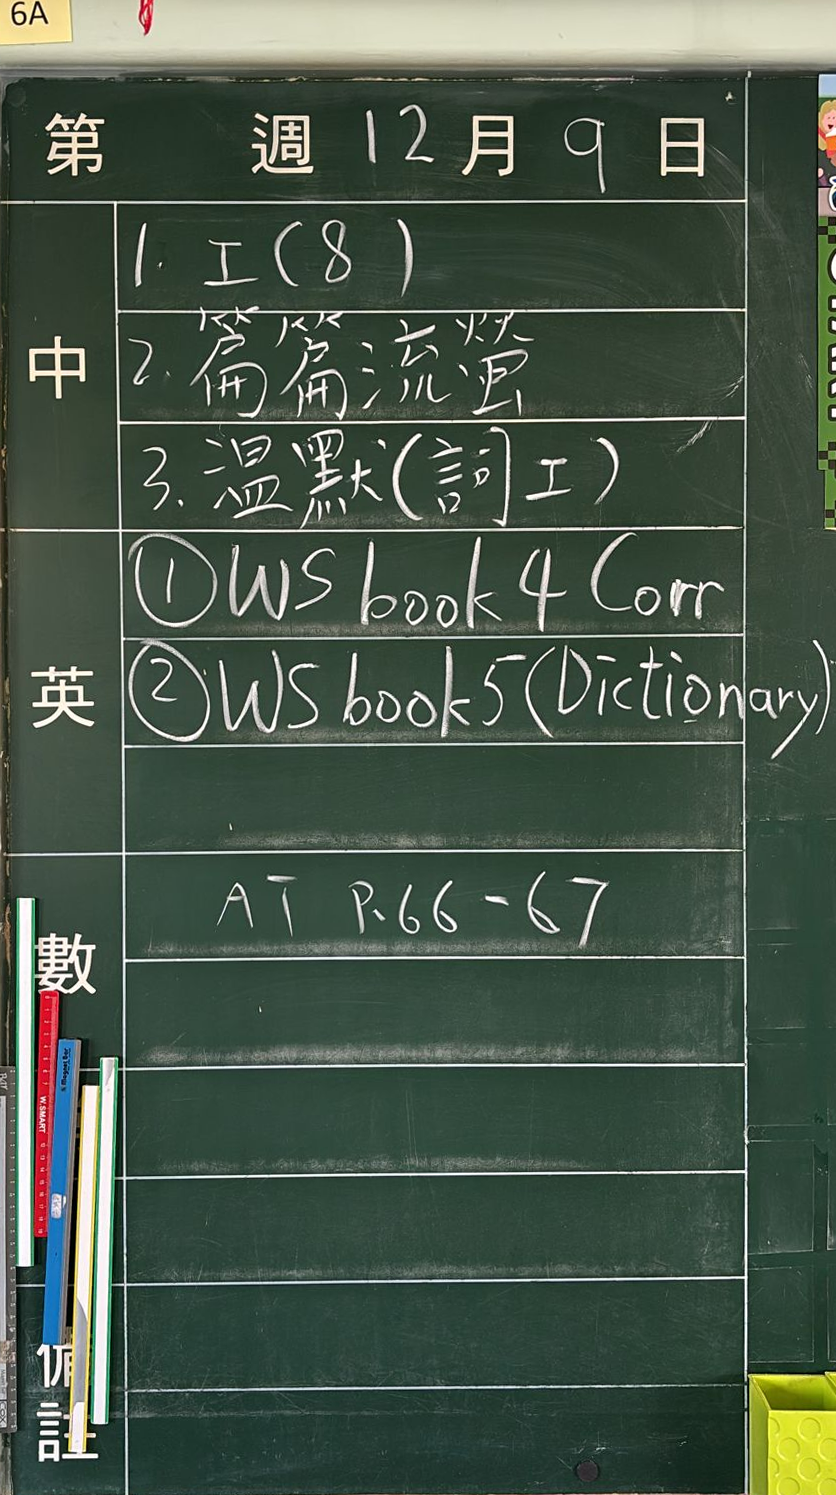 6A
第 週 12月 9 日
中
1. 工(8)
2. 篇篇流螢
3. 溫默(詞工)
英
①WS book 4 Corr
②WS book5 (Dictionary)
數
AT P.66-67
W.SMART
備註